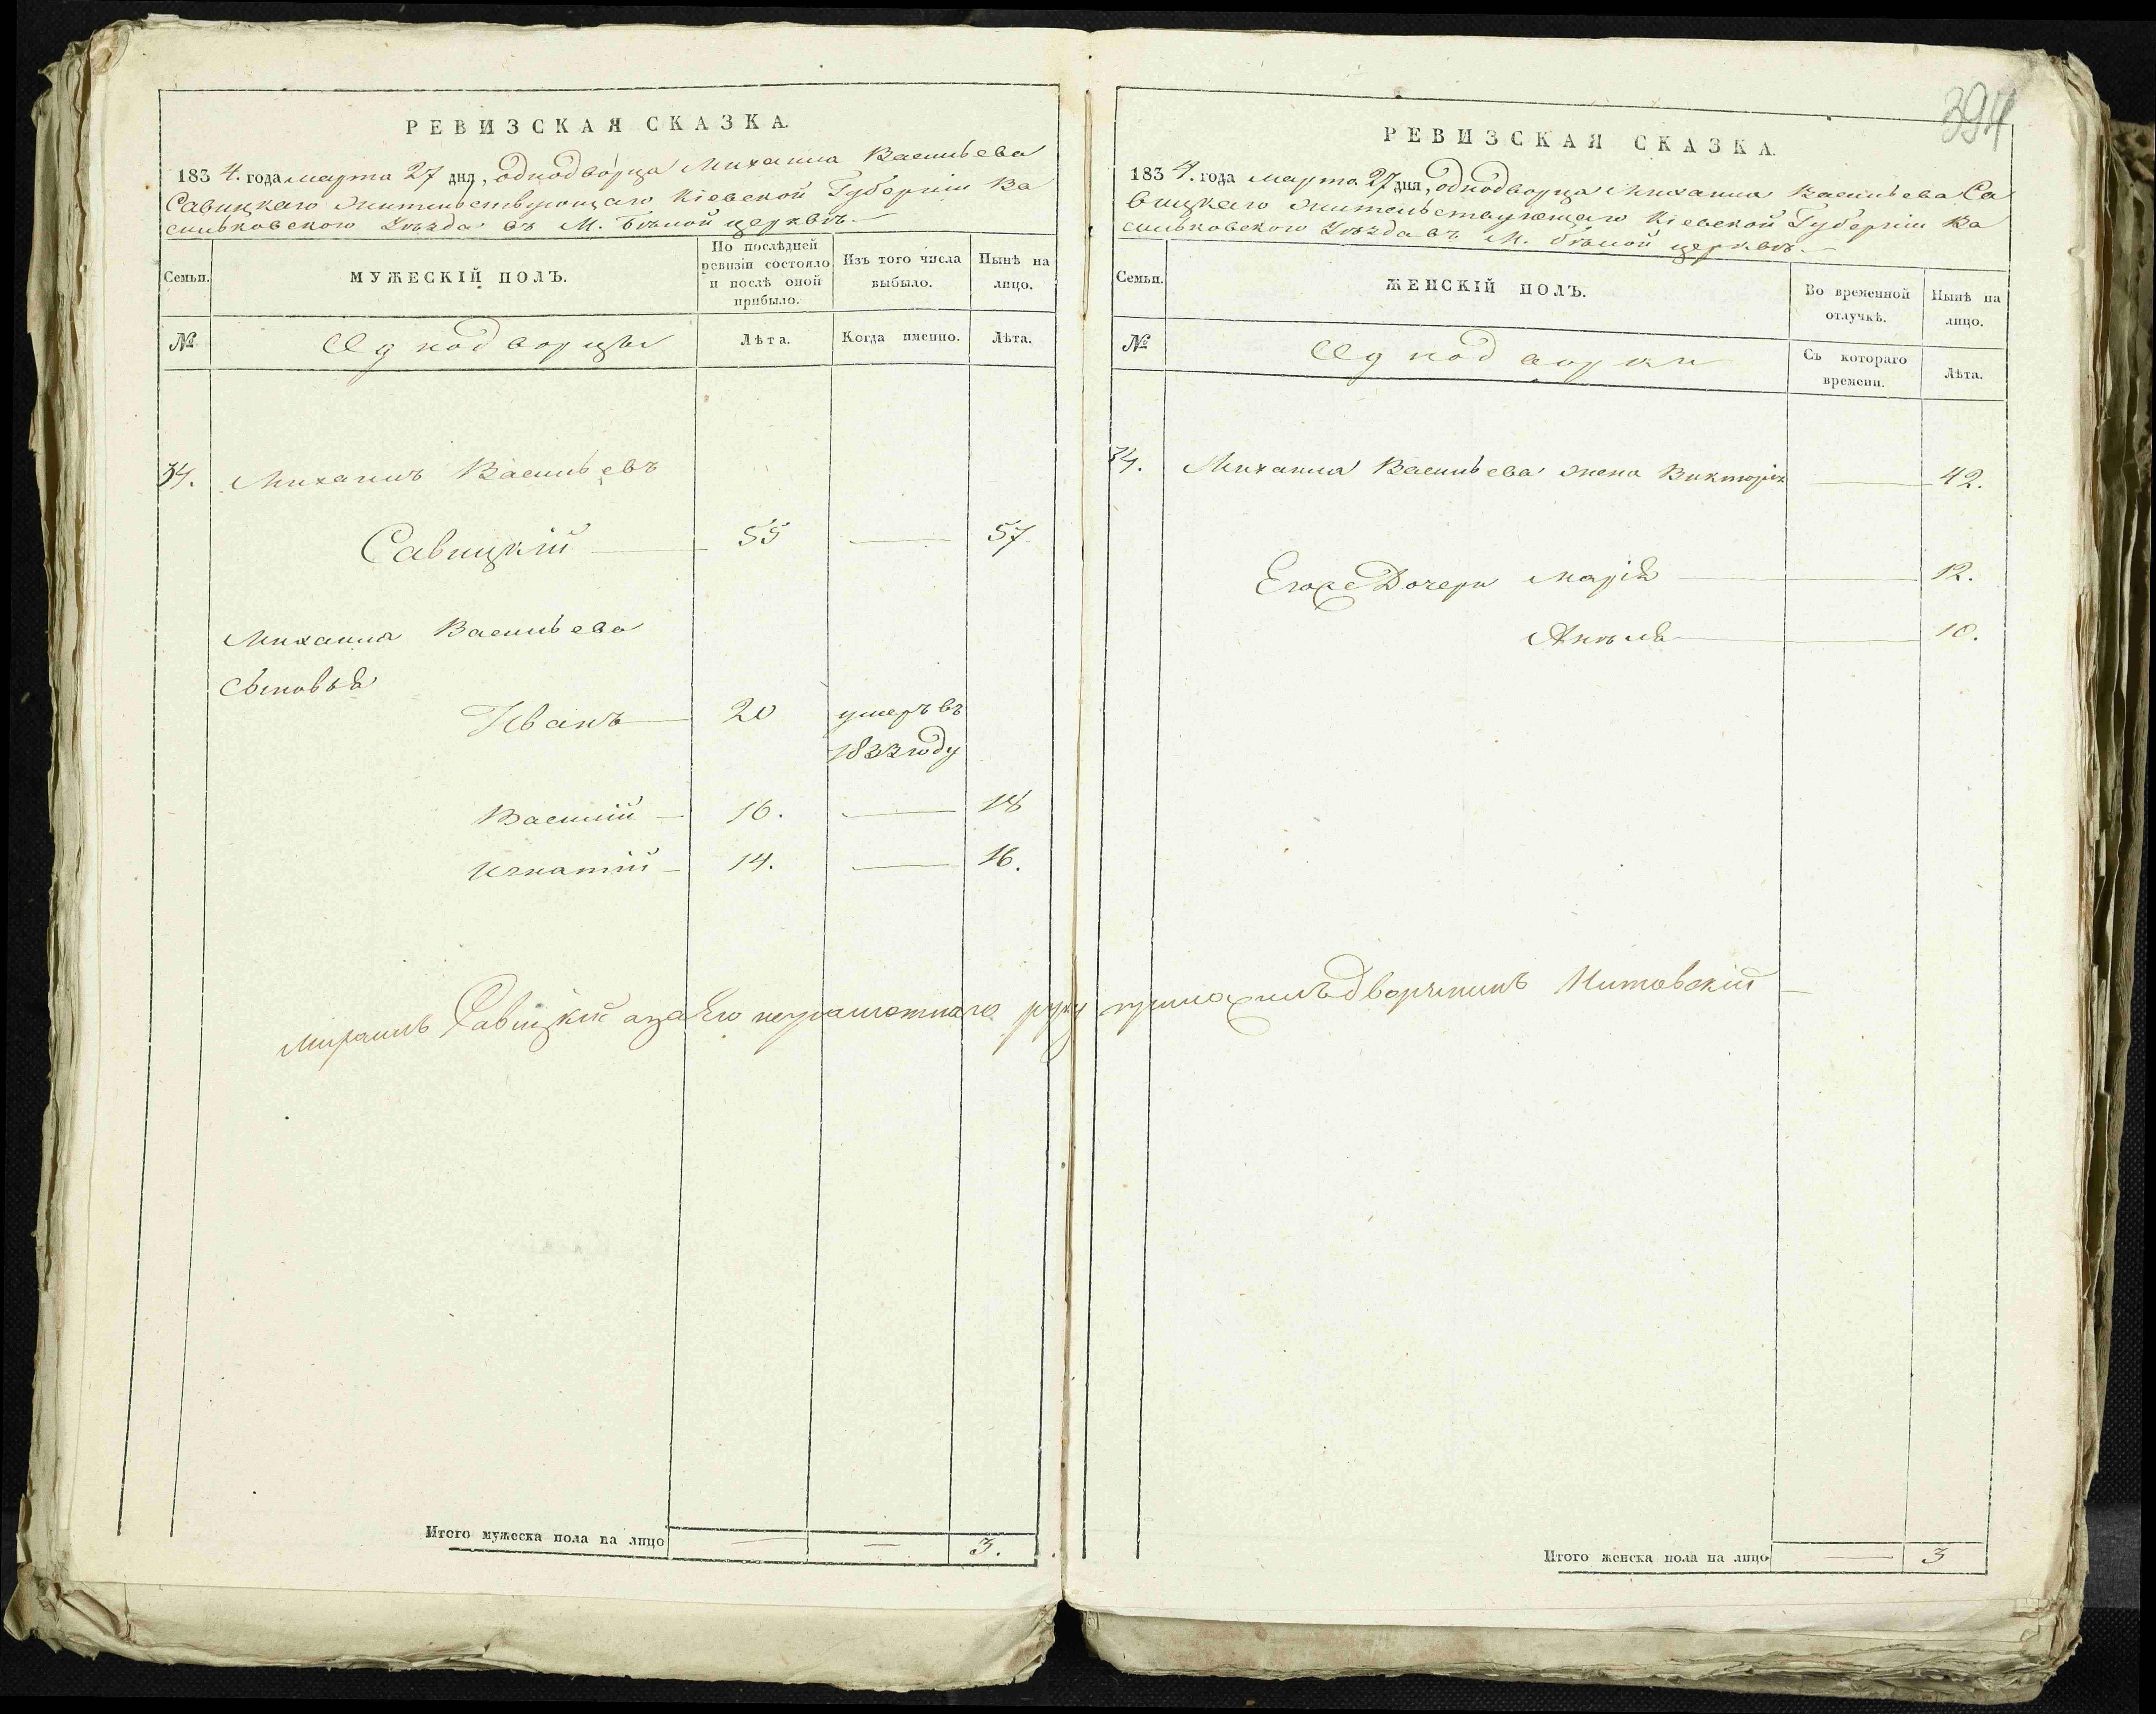 РЕВИЗСКАЯ СКАЗКА.
1834. года марта 27 дня, однодворца Михаила Васильева
Савицкаго жительствующаго Кіевской Губерніи Ва
сильковского Уѣзда въ М. Бѣлой церквѣ.
Семьи.
МУЖЕСКІЙ ПОЛЪ.
По послѣдней
ревизіи состояло
и послѣ оной
прибыло.
Изъ того числа
выбыло.
Нынѣ на
лицо.
№
Однодворцы
Лѣта.
Когда именно.
Лѣта.
34. Михаилъ Васильевъ
Савицкій 55 — 57
Михаила Васильева
Сыновья
Иванъ 20 умеръ въ
1833 году
Василій 16. — 18
Игнатій 14. — 16.
Михаилъ Савицкій а за Его неграмотнаго руку приложилъ дворянинъ
Итого мужеска пола на лицо — — 3.
394
РЕВИЗСКАЯ СКАЗКА.
1834. года марта 27 дня, однодворца Михаила Васильева Са
вицкаго жительствующаго Кіевской Губерніи Ва
сильковского Уѣзда въ М. бѣлой церквѣ.
Семьи.
ЖЕНСКІЙ ПОЛЪ.
Во временной
отлучкѣ.
Нынѣ на
лицо.
№
Однодворки
Съ котораго
времени.
Лѣта.
34. Михаила Васильева жена Викторія — 42.
Егоже Дочери Марія — 12.
Анѣля — 10.
Итого женска пола на лицо — 3